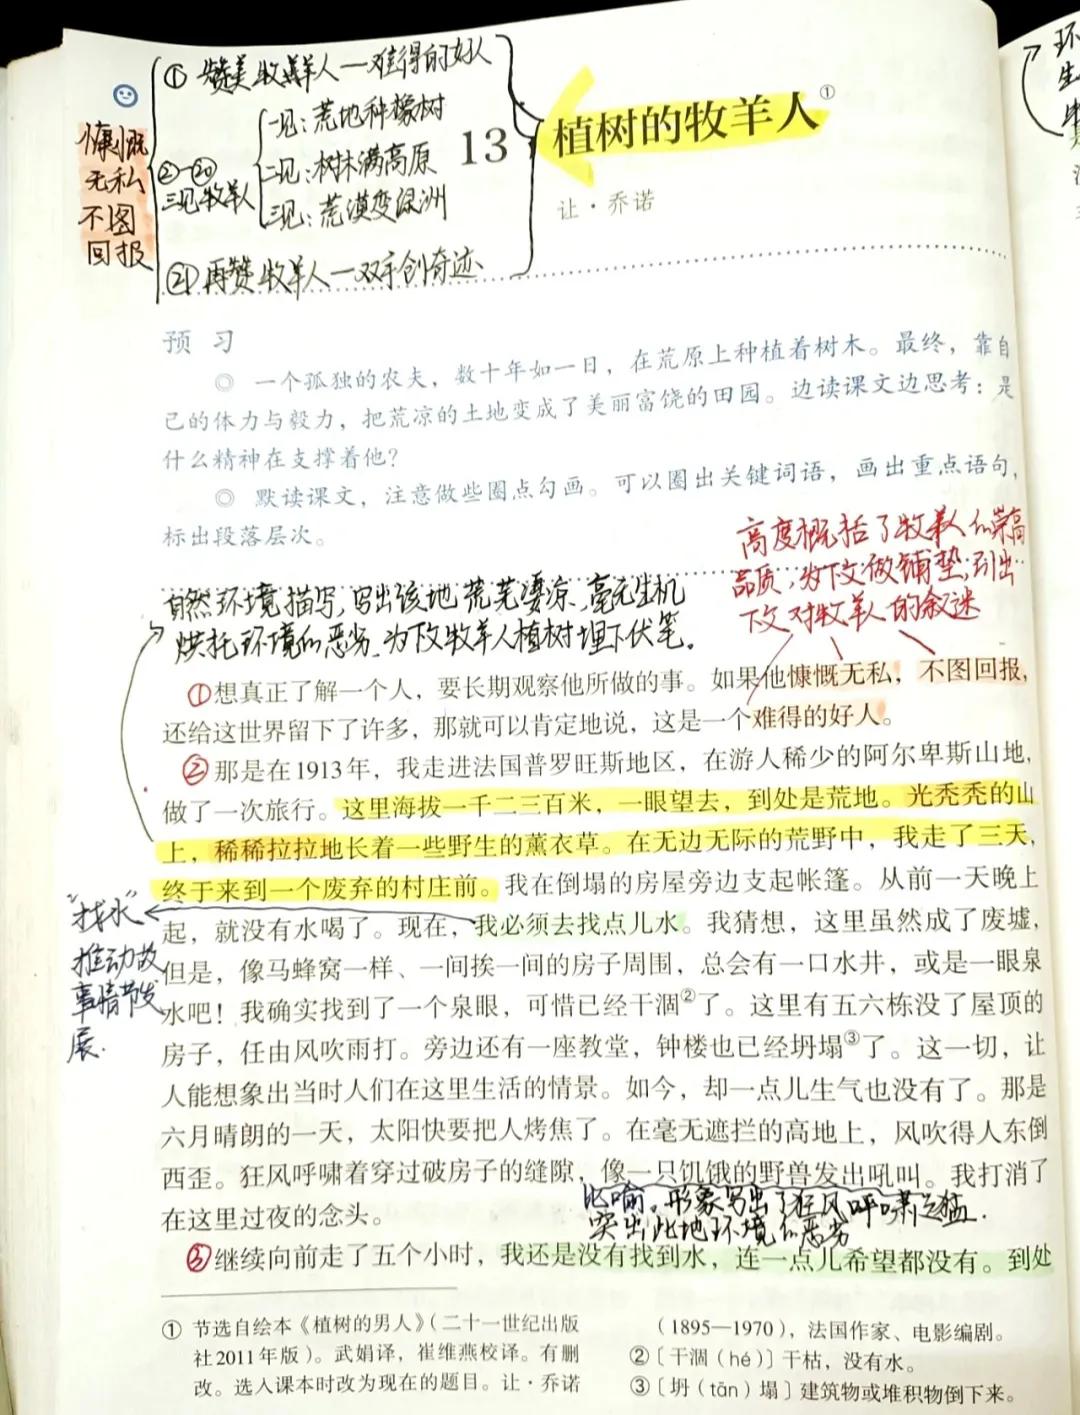 ① 赞美牧羊人—难得的好人
慷慨
无私
不图
回报
②—⑳
三见牧羊人
一见：荒地种橡树
二见：树林满高原
三见：荒漠变绿洲
㉑ 再赞牧羊人—双手创奇迹
13 植树的牧羊人①
让·乔诺
环
生
预 习
◎ 一个孤独的农夫，数十年如一日，在荒原上种植着树木。最终，靠自
己的体力与毅力，把荒凉的土地变成了美丽富饶的田园。边读课文边思考：是
什么精神在支撑着他？
◎ 默读课文，注意做些圈点勾画。可以圈出关键词语，画出重点语句，
标出段落层次。
高度概括了牧羊人的崇高
品质，为下文做铺垫，引出
下文对牧羊人的叙述
自然环境描写，写出该地荒芜凄凉、毫无生机
烘托环境的恶劣、为下文牧羊人植树埋下伏笔。
①想真正了解一个人，要长期观察他所做的事。如果他慷慨无私，不图回报，
还给这世界留下了许多，那就可以肯定地说，这是一个难得的好人。
②那是在1913年，我走进法国普罗旺斯地区，在游人稀少的阿尔卑斯山地，
做了一次旅行。这里海拔一千二三百米，一眼望去，到处是荒地。光秃秃的山
上，稀稀拉拉地长着一些野生的薰衣草。在无边无际的荒野中，我走了三天，
终于来到一个废弃的村庄前。我在倒塌的房屋旁边支起帐篷。从前一天晚上
起，就没有水喝了。现在，我必须去找点儿水。我猜想，这里虽然成了废墟，
但是，像马蜂窝一样、一间挨一间的房子周围，总会有一口水井，或是一眼泉
水吧！我确实找到了一个泉眼，可惜已经干涸②了。这里有五六栋没了屋顶的
房子，任由风吹雨打。旁边还有一座教堂，钟楼也已经坍塌③了。这一切，让
人能想象出当时人们在这里生活的情景。如今，却一点儿生气也没有了。那是
六月晴朗的一天，太阳快要把人烤焦了。在毫无遮拦的高地上，风吹得人东倒
西歪。狂风呼啸着穿过破房子的缝隙，像一只饥饿的野兽发出吼叫。我打消了
在这里过夜的念头。
“找水”
推动故
事情节发
展.
比喻。形象写出了狂风呼啸之猛.
突出此地环境的恶劣
③继续向前走了五个小时，我还是没有找到水，连一点儿希望都没有。到处
① 节选自绘本《植树的男人》（二十一世纪出版
社2011年版）。武娟译，崔维燕校译。有删
改。选入课本时改为现在的题目。让·乔诺
（1895—1970），法国作家、电影编剧。
②〔干涸（hé）〕干枯，没有水。
③〔坍（tān）塌〕建筑物或堆积物倒下来。